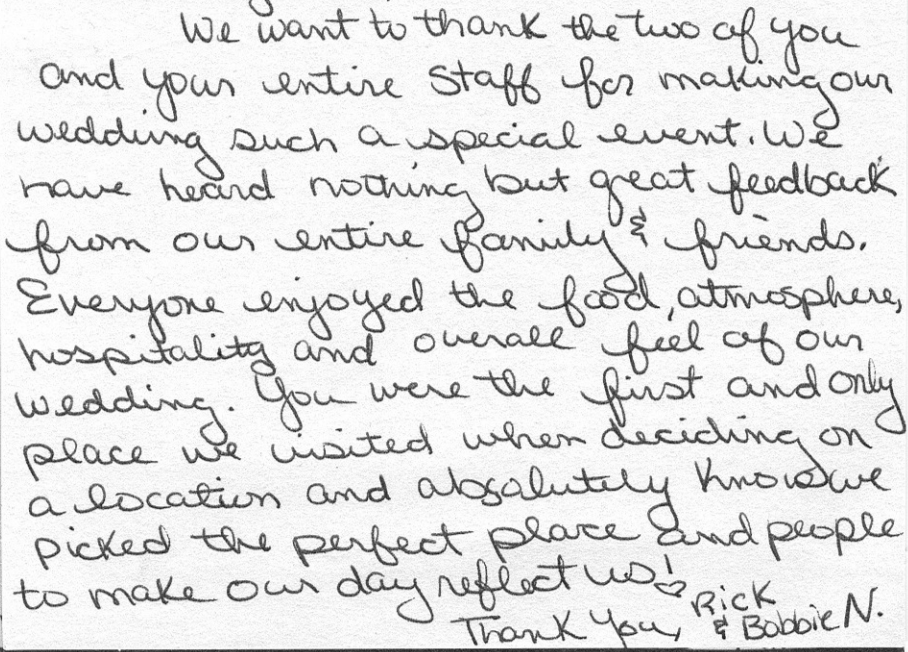 We want to thank the two of you
and your entire staff for making our
wedding such a special event. We
have heard nothing but great feedback
from our entire family & friends.
Everyone enjoyed the food, atmosphere,
hospitality and overall feel of our
wedding. You were the first and only
place we visited when deciding on
a location and absolutely know we
picked the perfect place and people
to make our day reflect us!
Thank You, Rick
& Bobbie N.